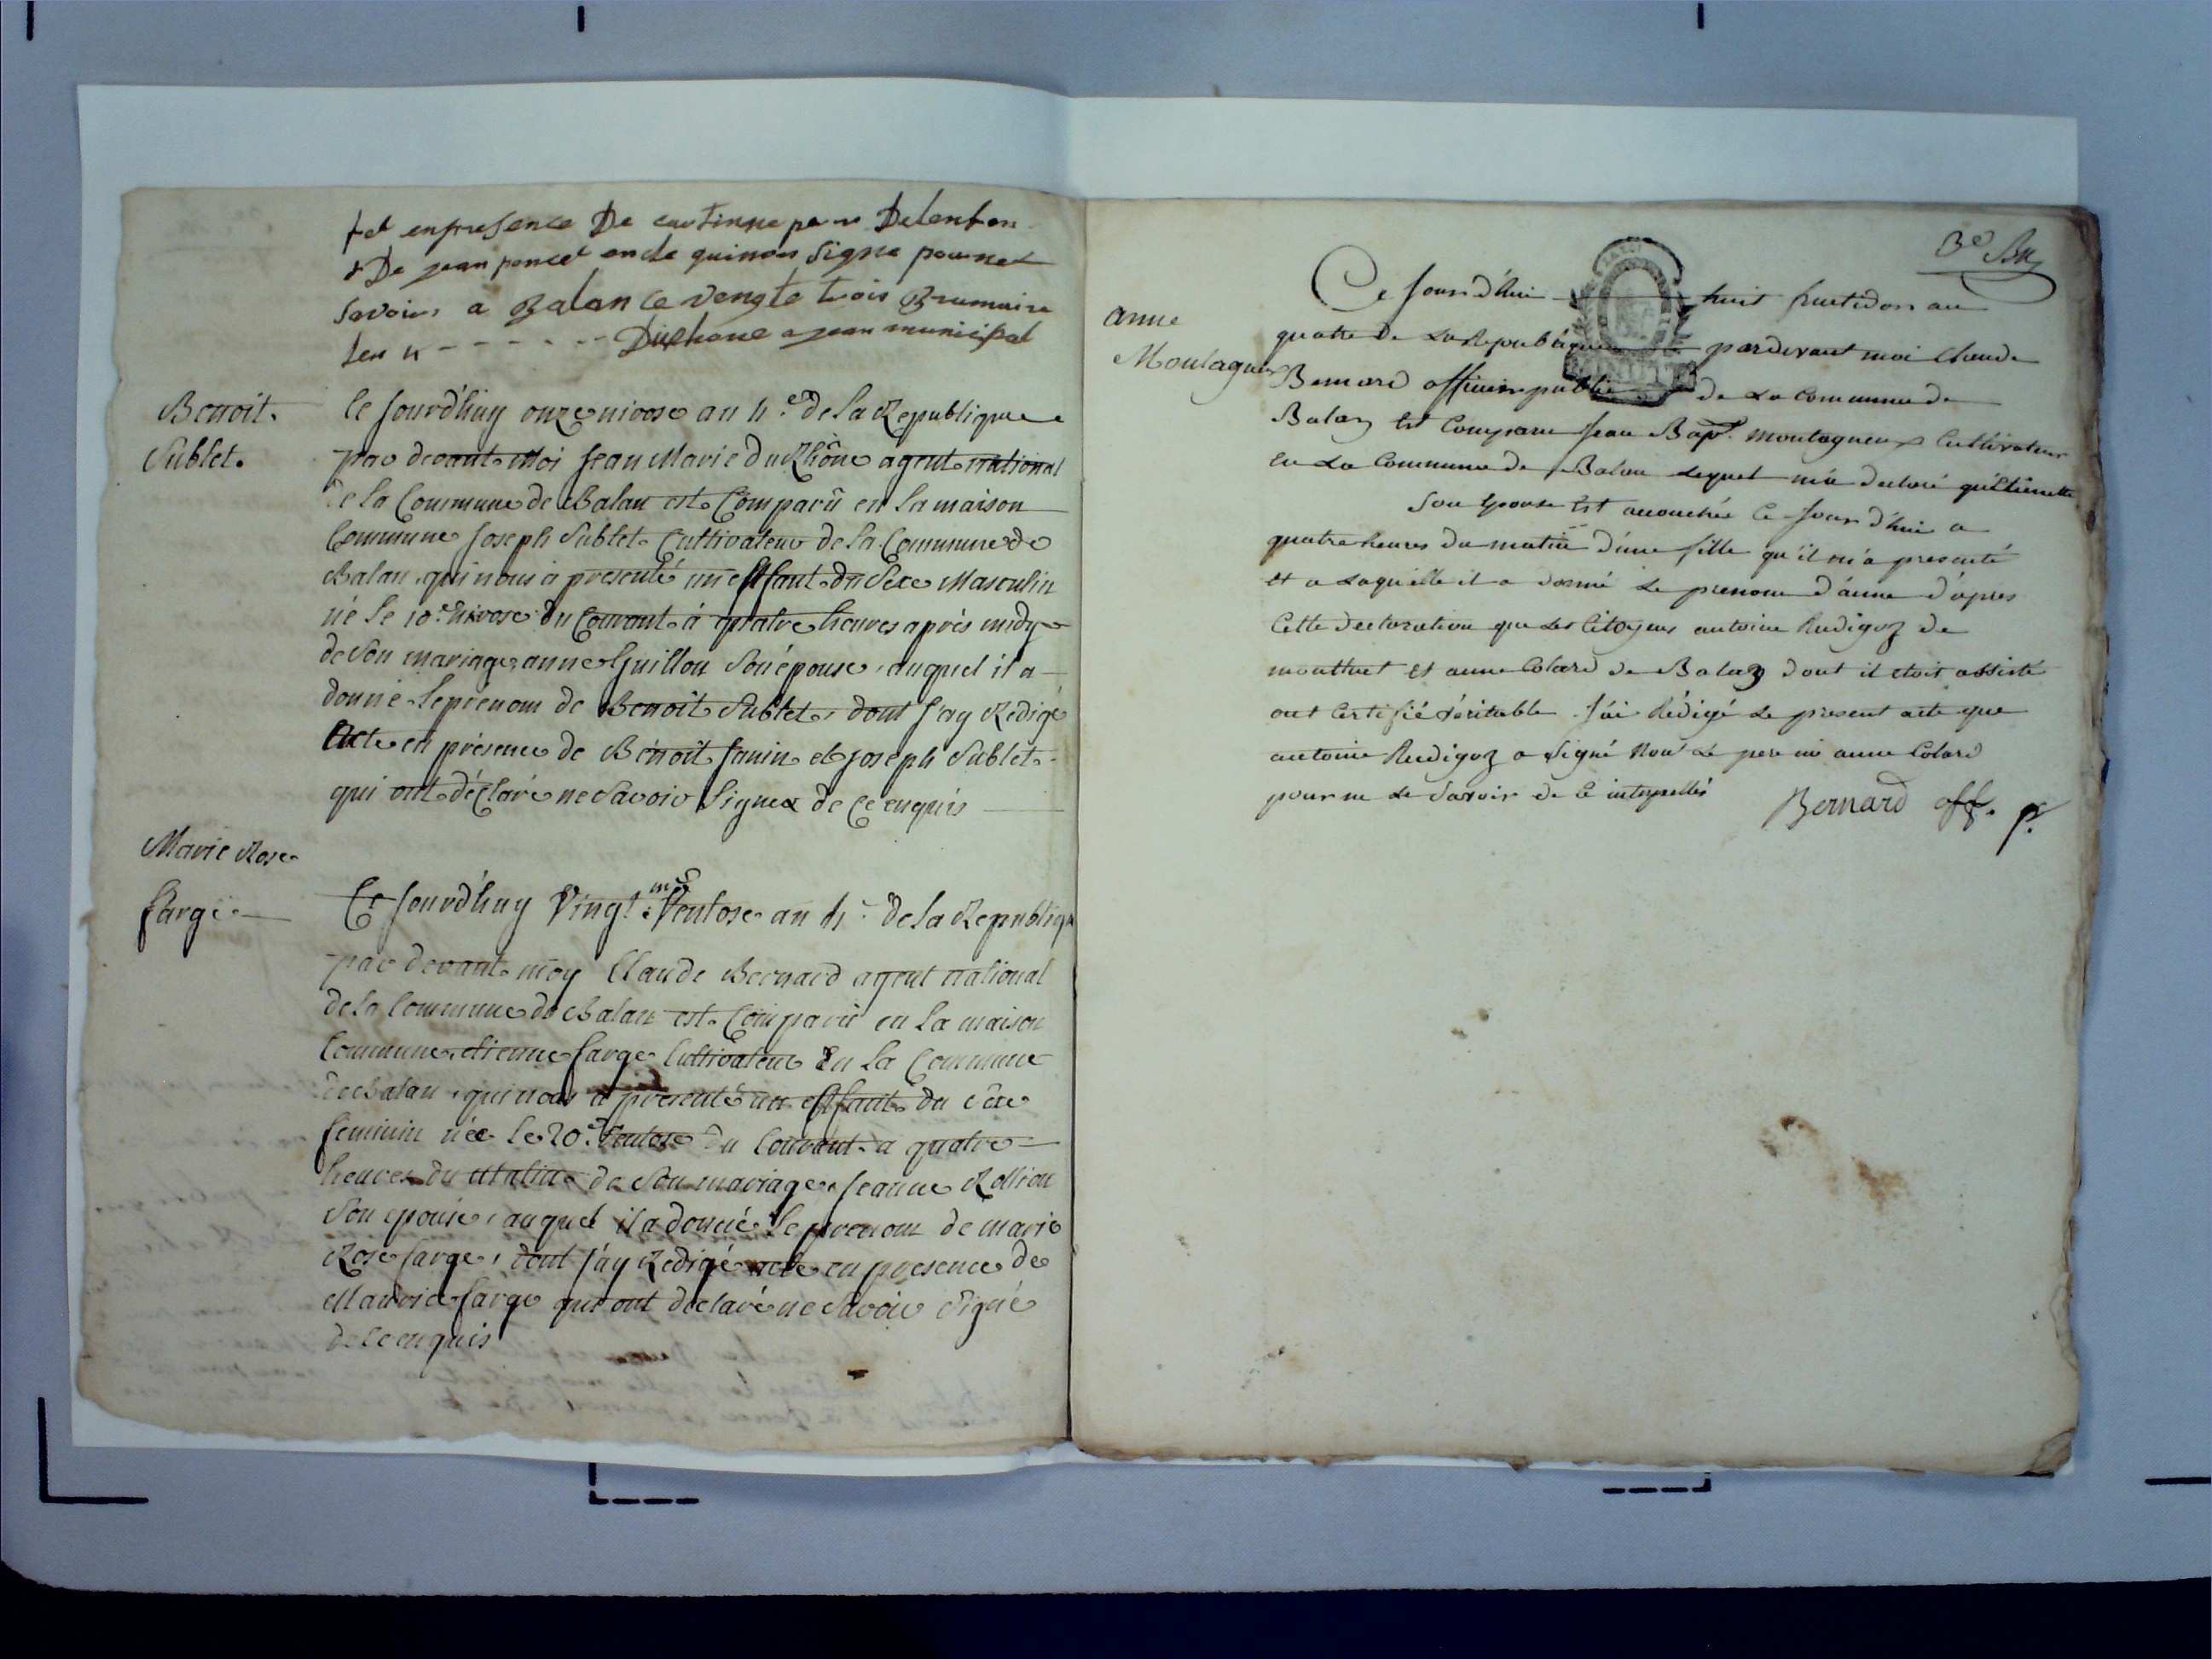 fet enpresence De cautinne pere Delenfan
& De jean poncet oncle quinon signe pournet
savoir a Balan le vengte trois Brumaire
len 4 - - - - - - Durhone ajean municipal
Benoit
Sublet.
Ce jourd'huy onze nivose an 4.e de la Republique
par devant Moi Jean Marie du Rhône agent national
de la Commune de Balan est Comparû en la maison
Commune Joseph Sublet Cultivateur de la Commune de
Balan, qui nous a presenté un Effant du Sexe Masculin
né le 10.e nivose du Courant à quatre heures après midy
de Son mariage, anne Guillon Son épouse, auquel il a
donné le prénom de Benoit Sublet, dont j'ay Redigé
Acte en présence de Benoit Janin et Joseph Sublet
qui ont déclaré ne Savoir Signer de Ce enquis
Marie Rose
farge
Ce jourd'huy Vingt.me Ventose an 4.e de la Republiqu
par devant moy Claude Bernard agent national
de la Commune de Balan est Comparû en la maison
Commune, etienne farge Cultivateur En la Commune
de Balan, qui nous a presenté un Effant du Sexe
feminin née le 20.e Ventose du Courant a quatre
heures du Matin de Son mariage, Jeanne Rollion
Son epouse, auquel il a donné le prenom de marie
Rose farge, dont j'ay Redigé acte en presence de
farge qui ont declaré ne Savoir Signé
de Ce enquis
3e Bu
anne
Montagneux
Ce jourd'hui huit fructidor an
quatre de la Republique pardevant moi Claude
Bernard officier public de la Commune de
Balan Est Comparu Jean Bapt. montagneux Cultivateur
en la Commune de Balan lequel m'a declaré qu'Etienette
Son Epouse Est accouchée Ce jour d'hui a
quatre heures du matin d'une fille qu'il m'a presenté
et a laquelle il a donné le prenom d'anne d'après
Cette declaration que les Citoyens antoine Rudigoz de
monttuel et anne Colard de Balan dont il etoit assisté
ont Certifié véritable j'ai Rédigé le present acte que
antoine Rudigoz a signé non le pere ni anne Colard
pour ne le Savoir de Ce interpellés
Bernard off. p.